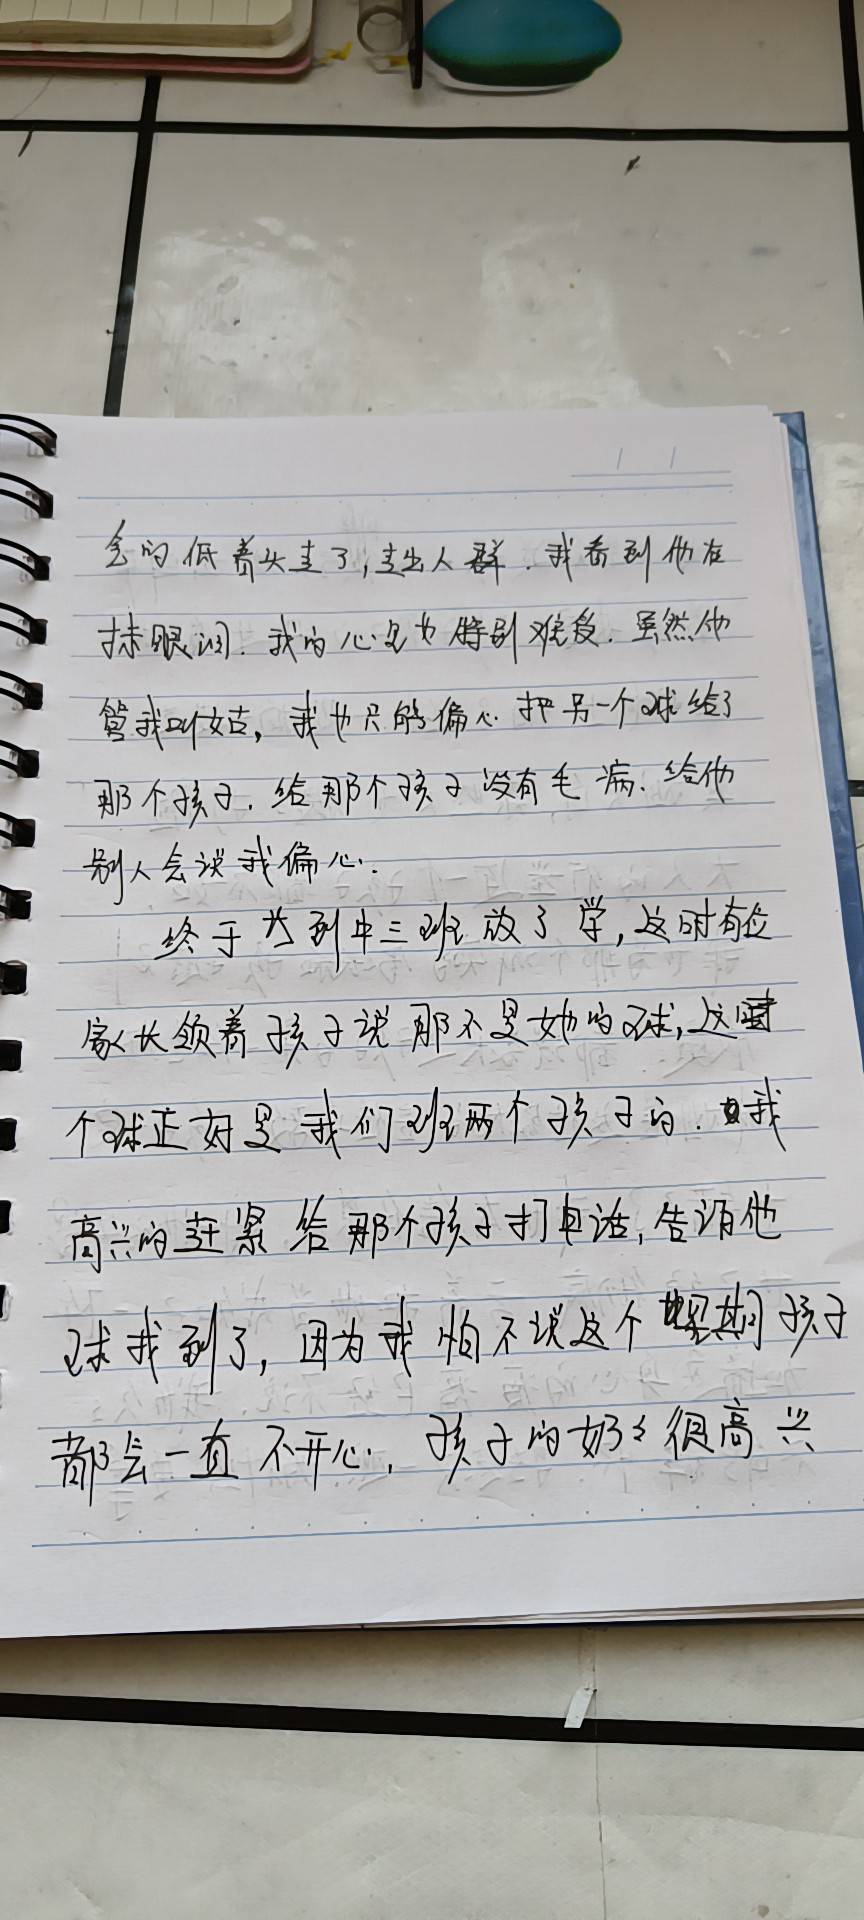 的低着头走了，走出人群．我看到他在
抹眼泪．我的心里也特别难受．虽然他
管我叫姑，我也只能偏心把另一个球给了
那个孩子．给那个孩子没有毛病．给他
别人会说我偏心．
终于等到中三班放了学，这时有位
家长领着孩子说那不是她的球，这
个球正好是我们班两个孩子的．我
高兴的赶紧给那个孩子打电话，告诉他
球找到了，因为我怕不说这个假期孩子
都会一直不开心．孩子的奶々很高兴